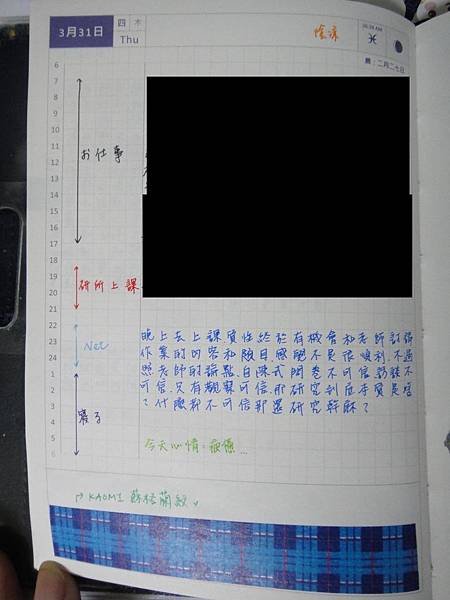 3月31日
四 木
Thu
陰涼
農:二月二七日
6
7
8
9
10
11
お仕事
12
13
14
15
16
17
18
19
研所上課
20
21
22
Net
23
24
晚上去上課質性終於有機會和老師討論
作業的內容和題目感覺不是很順利.不過
照老師的論點.自陳式問卷不可信訪談不
可信.只有觀察可信.那研究到底本質是啥
?什麼都不可信那還研究幹麻?
1
2
3
寢る
4
5
6
今天心情:疲憊...
KAOMI 蘇格蘭紋